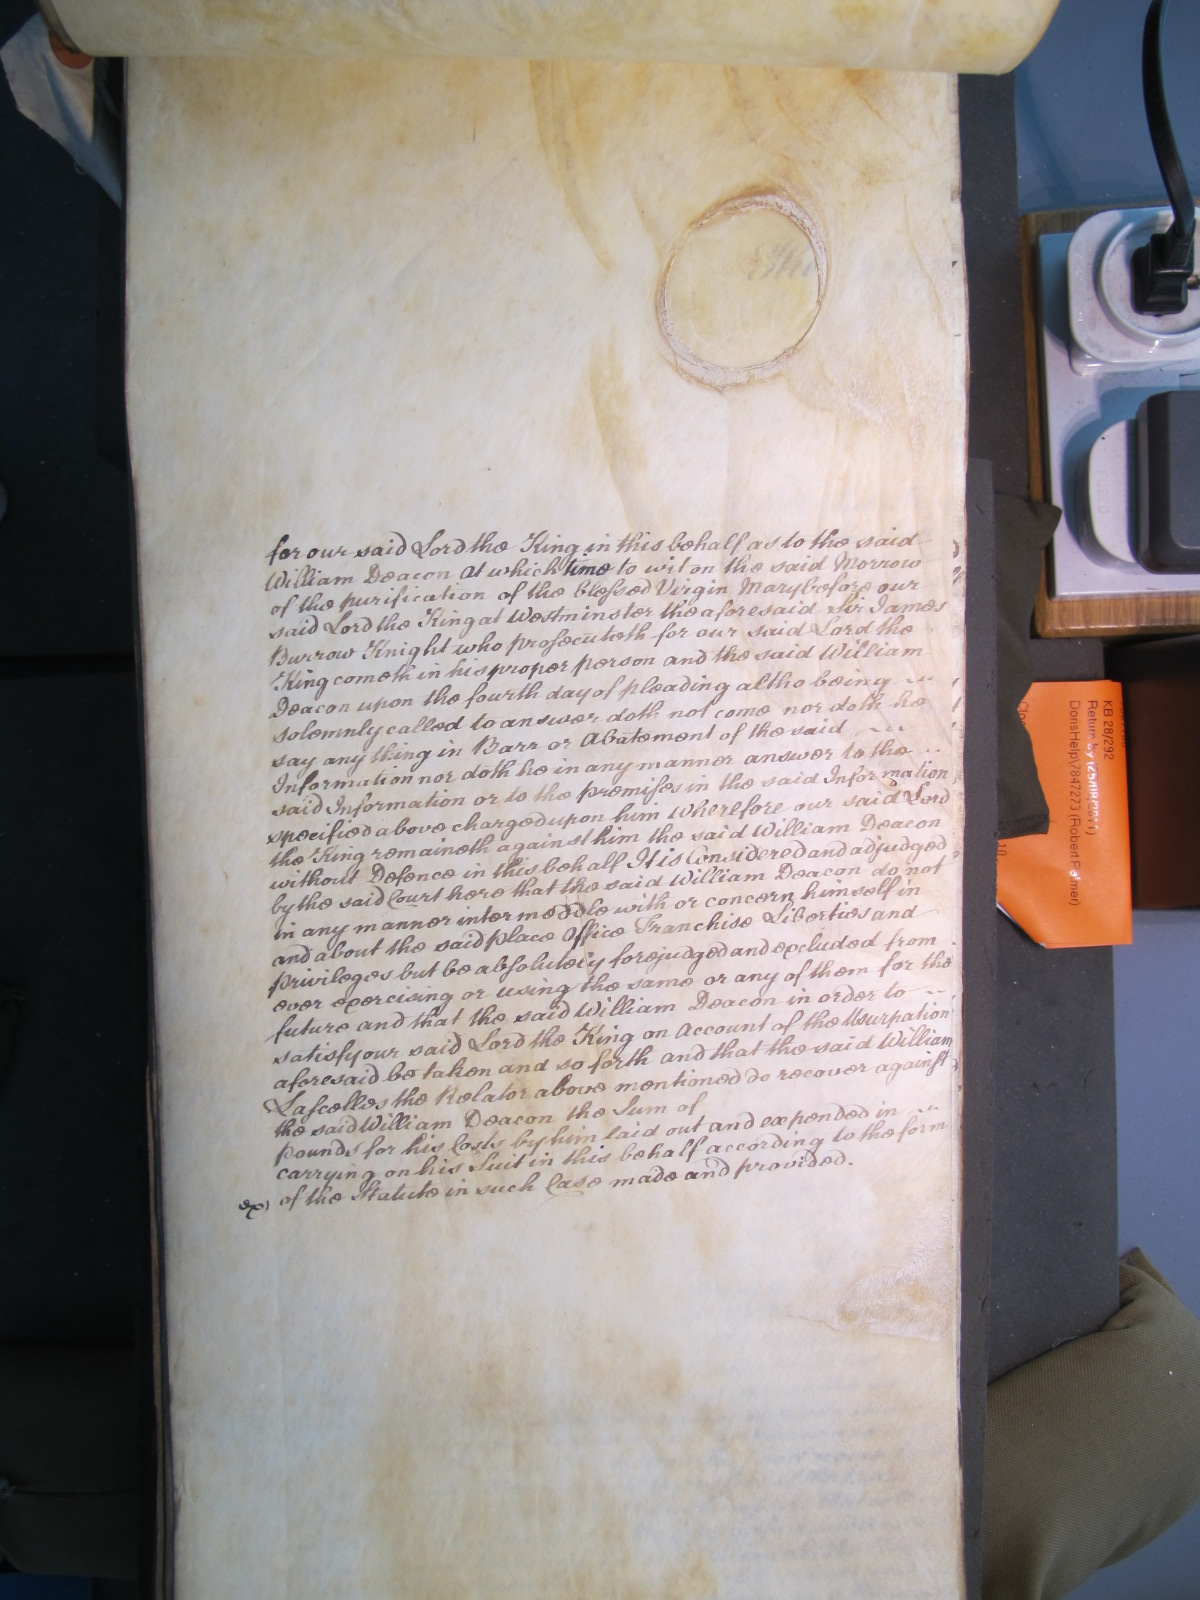 for our said Lord the King in this behalf as to the said
William Deacon At which time to wit on the said Morrow
of the purification of the blessed Virgin Mary before our
said Lord the King at Westminster the aforesaid Sir James
Burrow Knight who prosecuteth for our said Lord the
King cometh in his proper person and the said William
Deacon upon the fourth day of pleading altho being
solemnly called to answer doth not come nor doth he
say any thing in Barr or Abatement of the said
Information nor doth he in any manner answer to the
said Information or to the premises in the said Information
specified above charged upon him Wherefore our said Lord
the King remaineth against him the said William Deacon
without Defence in this behalf It is Considered and adjudged
by the said Court here that the said William Deacon do not
in any manner intermeddle with or concern himself in
and about the said place Office Franchise Liberties and
privileges but be absolutely forejudged and excluded from
ever exercising or using the same or any of them for the
future and that the said William Deacon in order to
satisfy our said Lord the King on Account of the Usurpation
aforesaid be taken and so forth and that the said William
Lascelles the Relator above mentioned do recover against
the said William Deacon the Sum of
pounds for his Costs by him laid out and expended in
carrying on his Suit in this behalf according to the form
of the Statute in such Case made and provided.
KB 28/292
Return by (25/08/2011)
DorisHelp\7847273 (Robert Palmer)